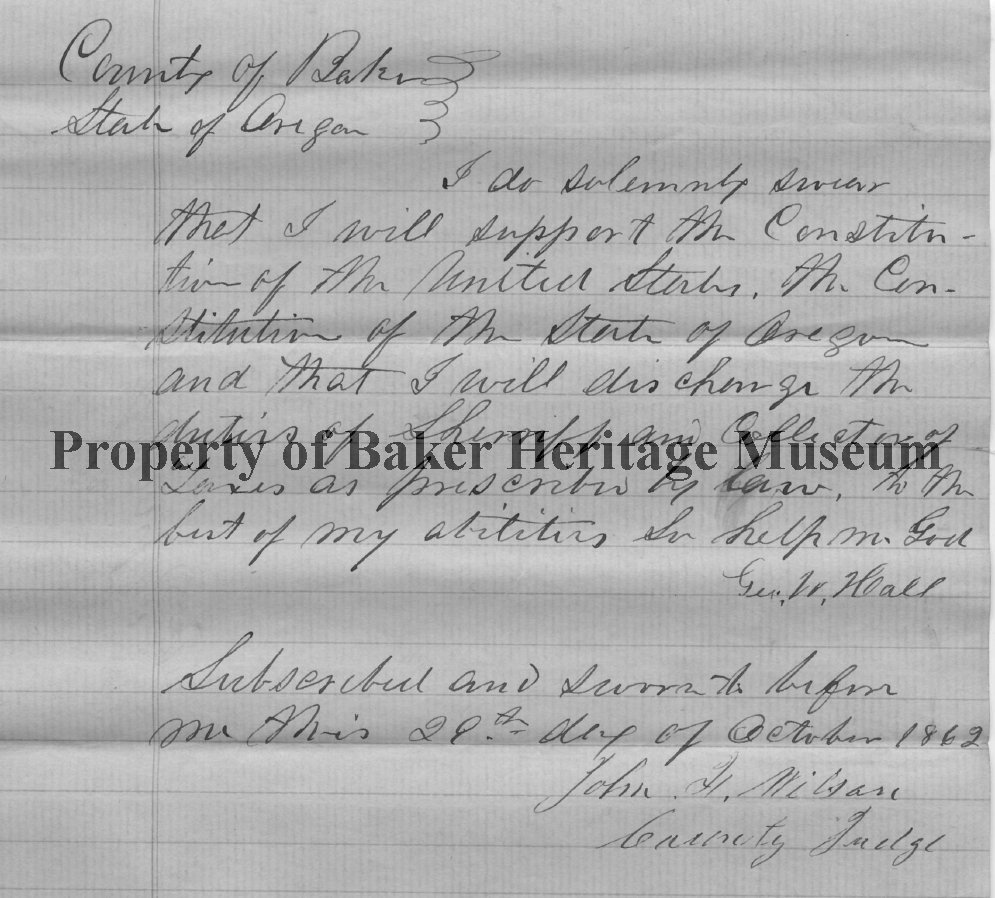 County of Baker
State of Oregon
I do solemnly swear
that I will support the Constitu-
tion of the United States, the Con-
stitution of the State of Oregon
and that I will discharge the
duties of Sheriff and Collector of
Property of Baker Heritage Museum
Taxes as prescribed by law, to the
best of my abilities So help me God
Geo. W. Hall
Subscribed and sworn to before
me this 28th day of October 1862
John H. Wilson
County Judge